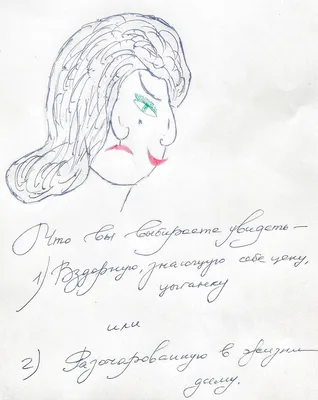 Что вы выбираете увидеть –
1) Вздорную, знающую себе цену,
цыганку
или
2) Разочарованную в жизни
даму.